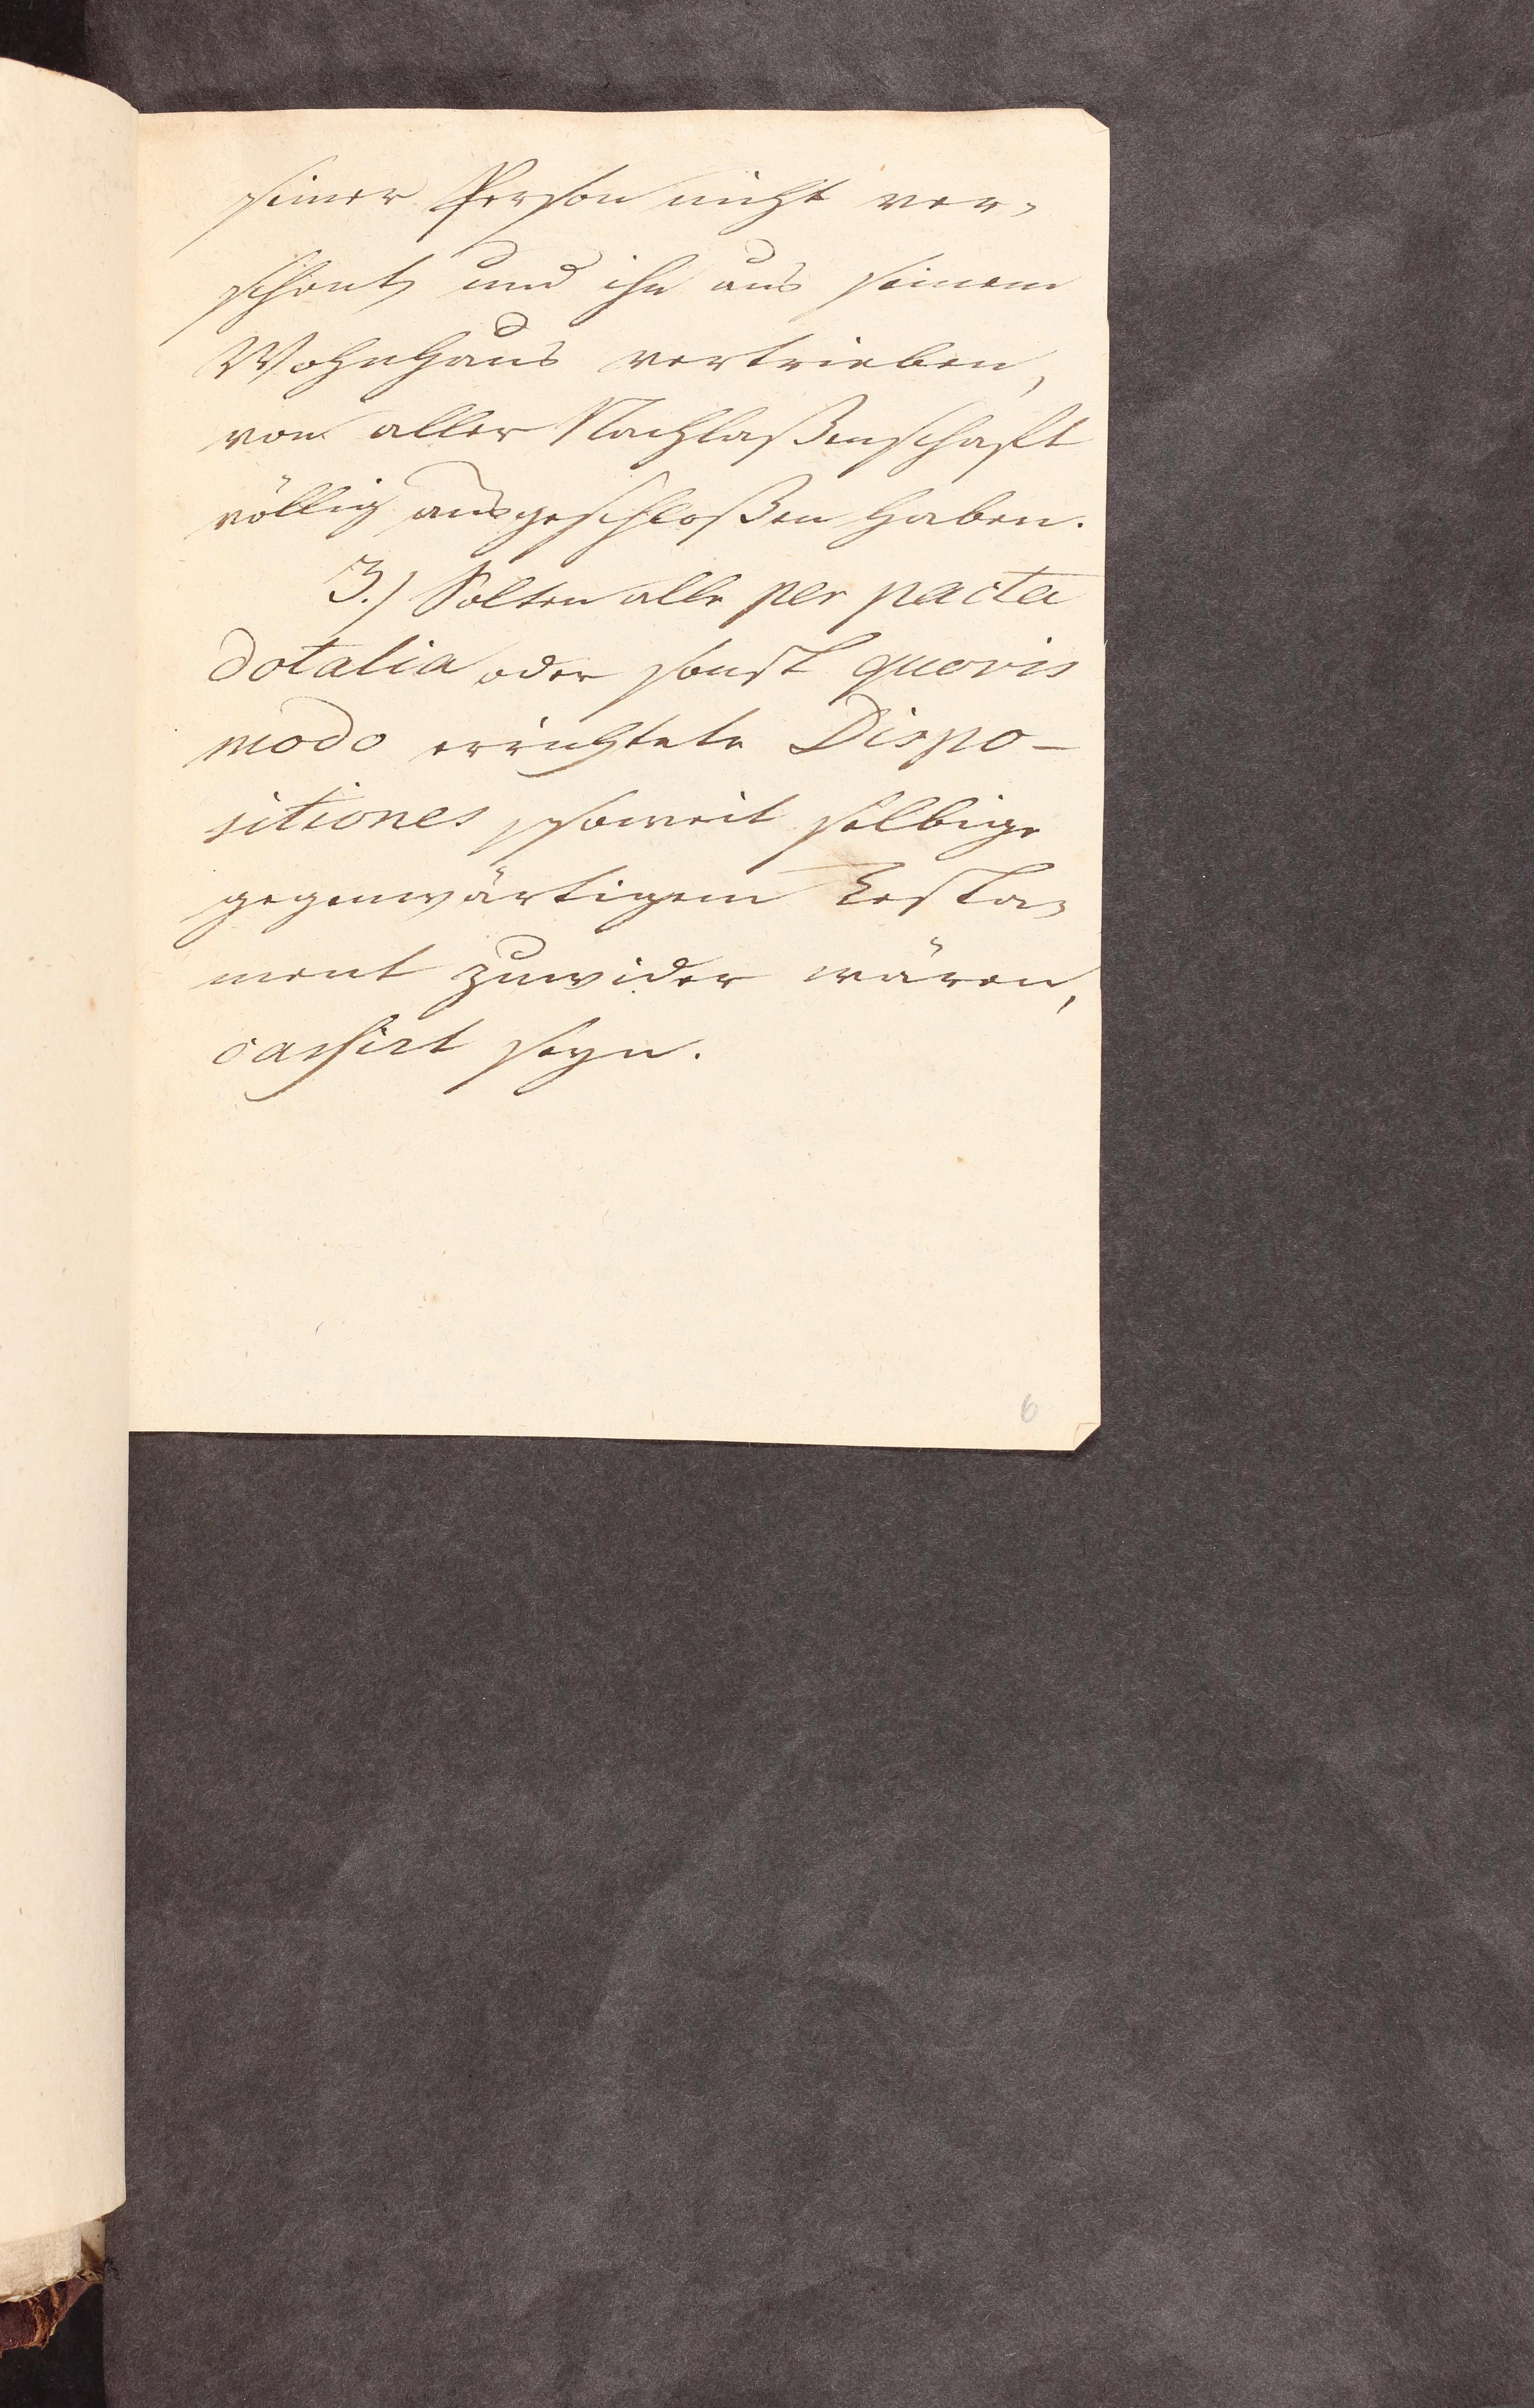 seiner Person nicht ver-
schont, und ihn aus seinem
Wohnhaus vertrieben,
von aller Nachlaßenschaft
völlig ausgeschloßen haben.
3.) Solten alle per pacta
dotalia oder sonst quovis
modo errichtete Dispo-
sitiones, soweit selbige
gegenwärtigem Testa-
ment zuwider wären,
cassirt seyn.
6